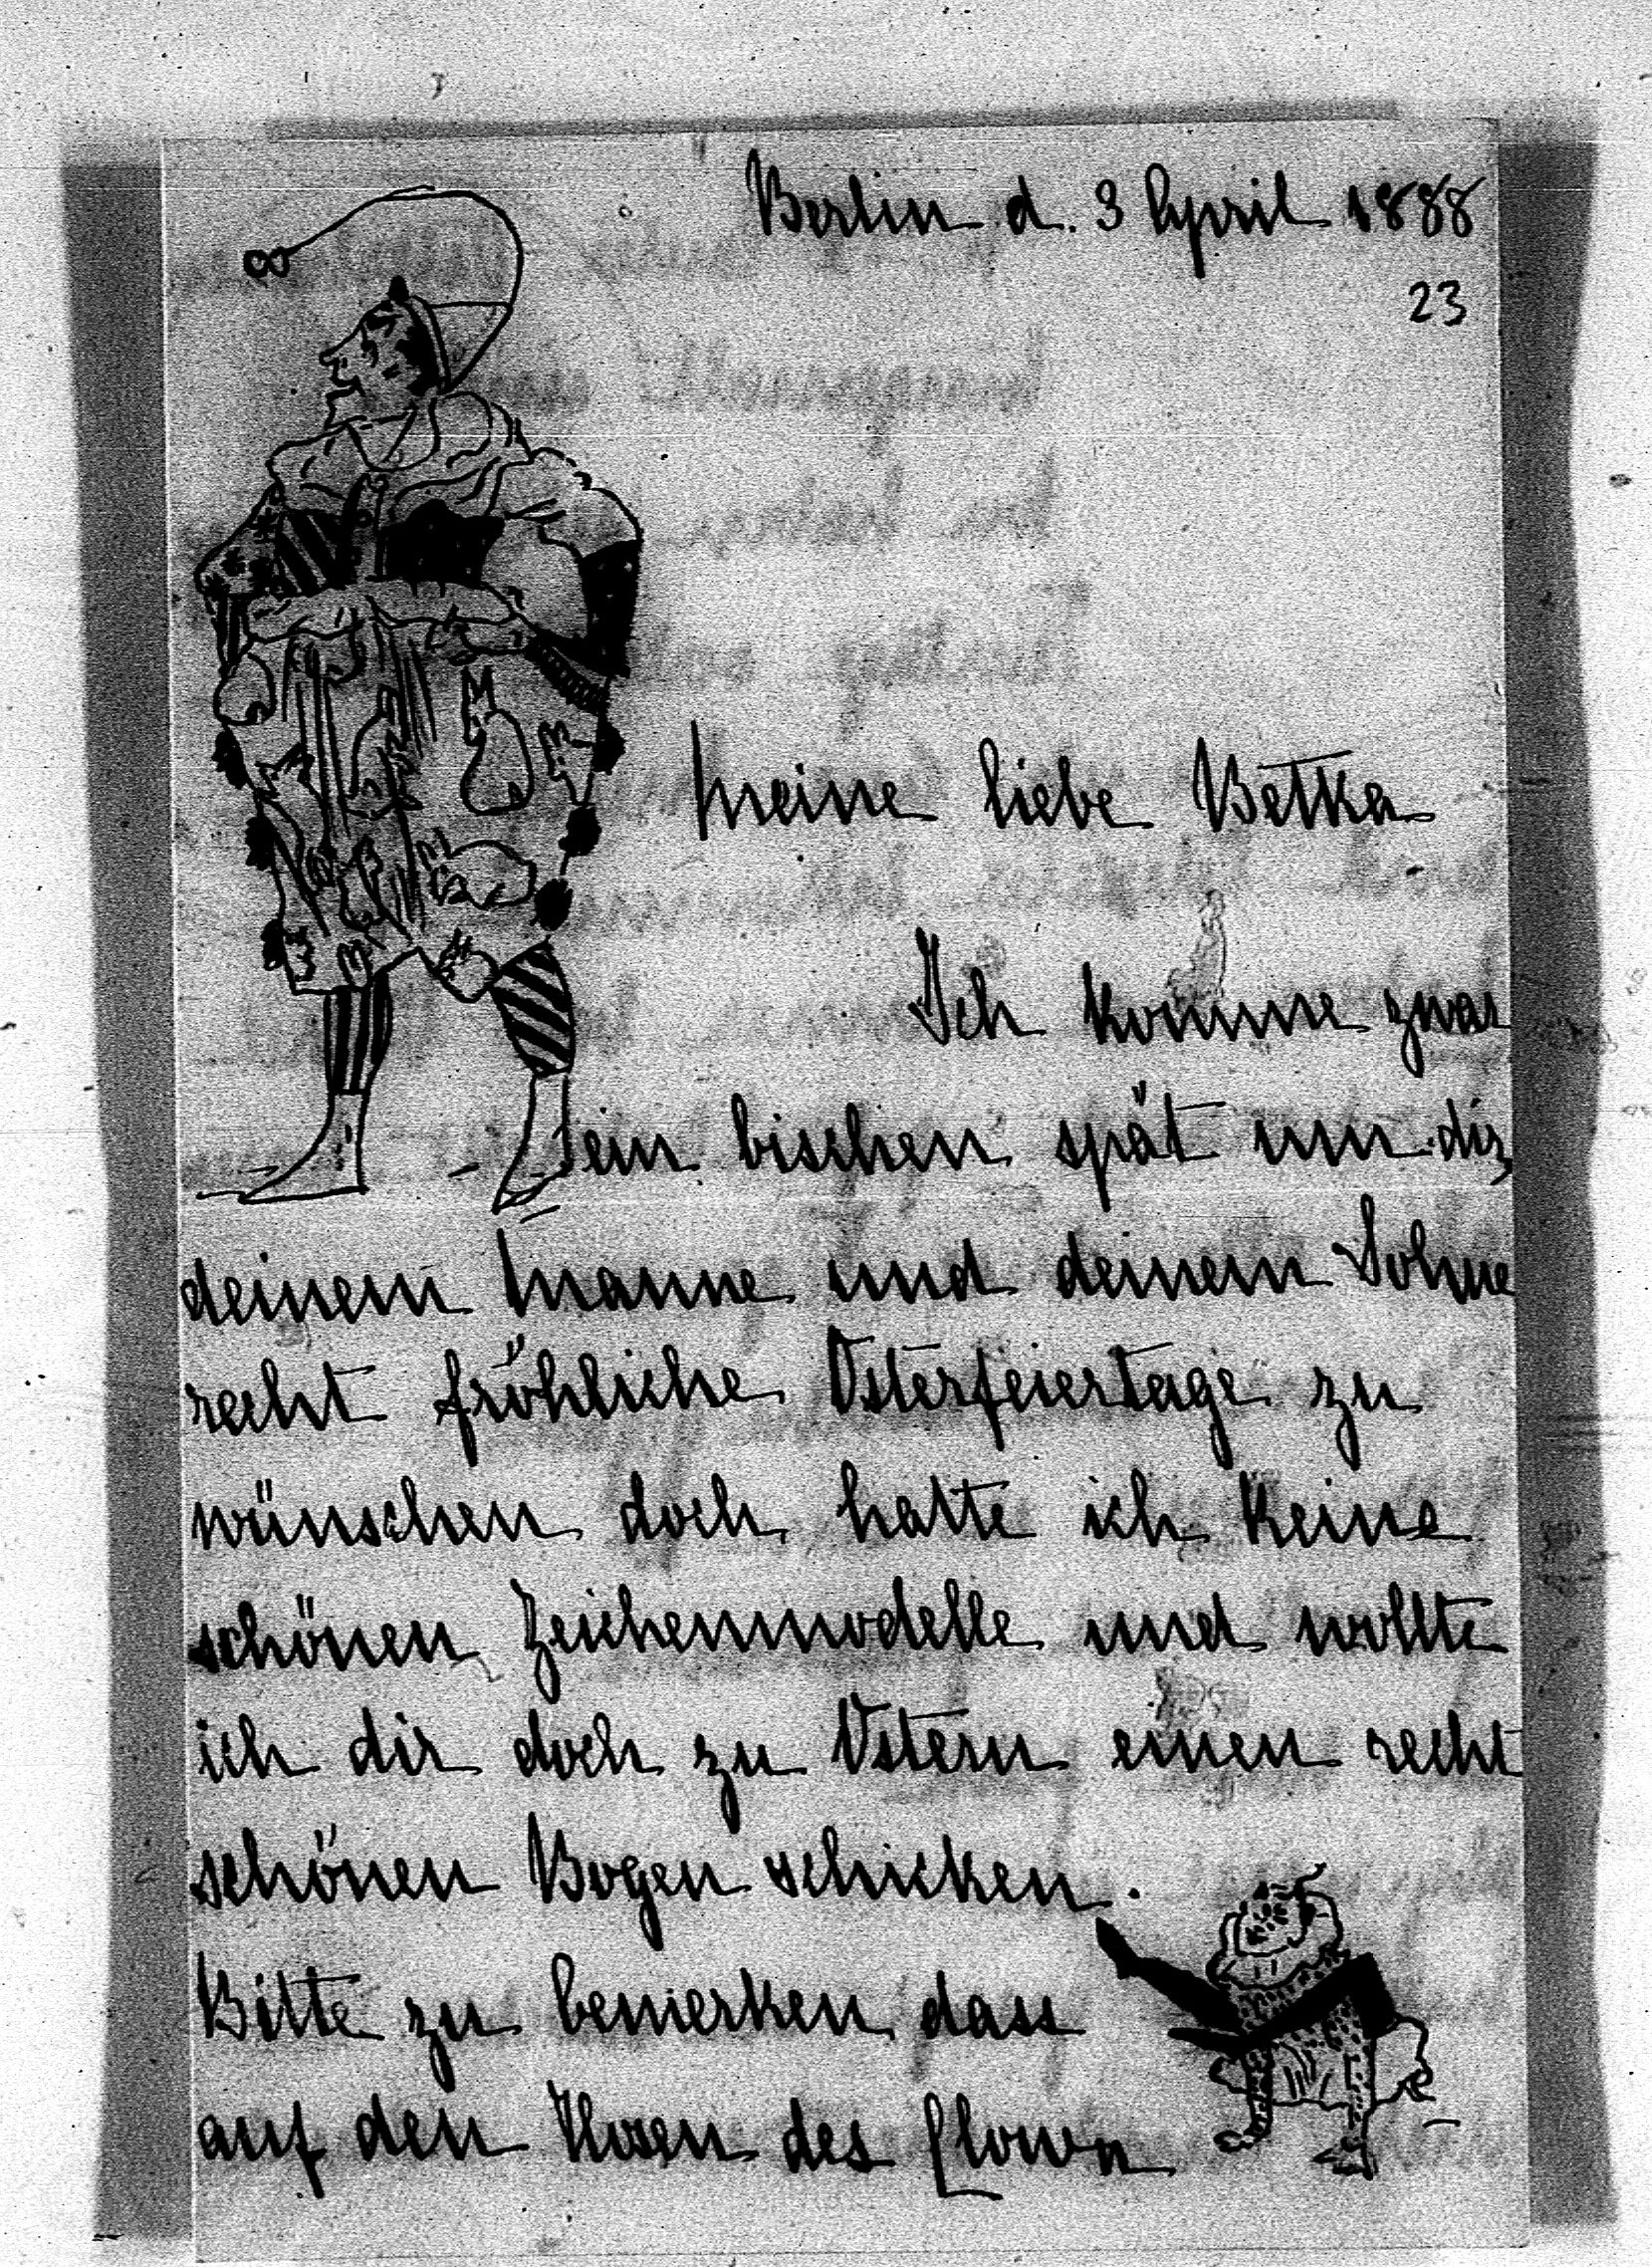 Berlin d. 3 April 1888
23
Meine liebe Betka
Ich komme zwar
ein bischen spät um dir,
deinem Manne und deinem Sohne
recht fröhliche Osterfeiertage zu
wünschen doch hatte ich keine
schönen Zeichenmodelle und wollte
ich dir doch zu Ostern einen recht
schönen Bogen schicken.
Bitte zu bemerken dass
auf den Hosen des Clown